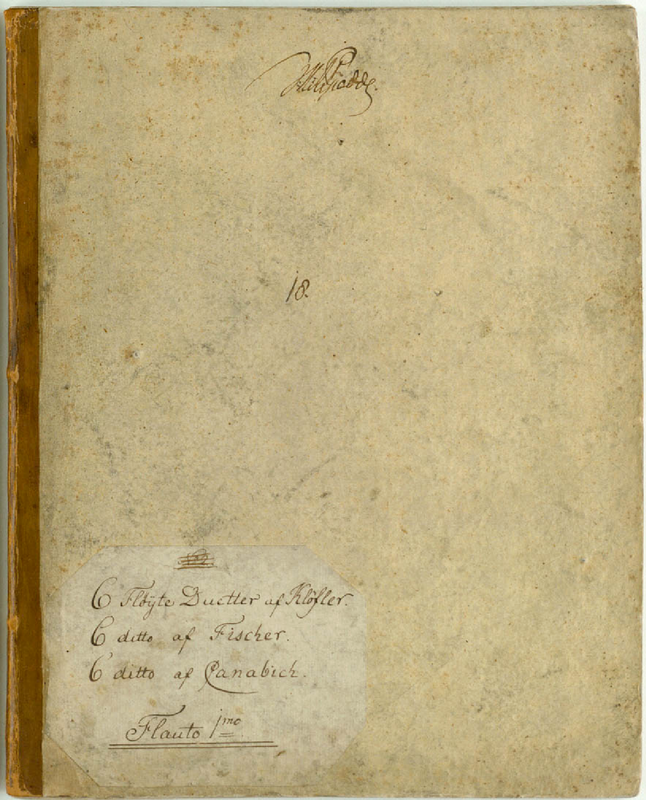 18.
6 Fløyte Duetter af Kløfler.
6 ditto af Fischer.
6 ditto af Canabich.
Flauto jmo